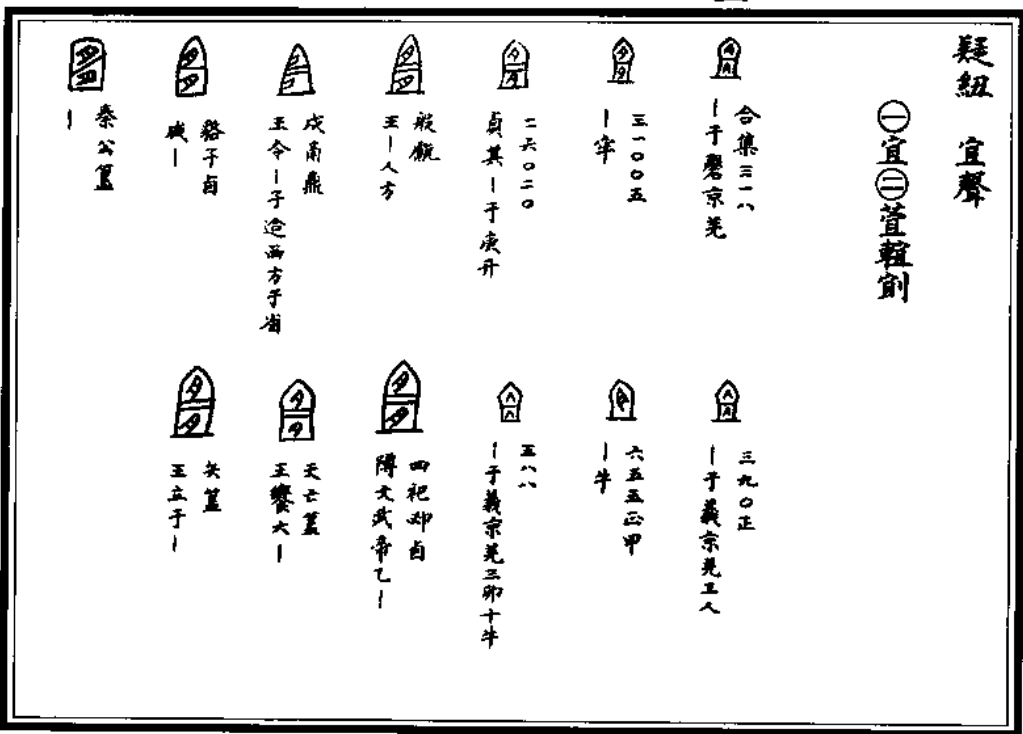 疑紐 宜聲
㊀宜㊁萱輨劊
合集三一八
一于磬京羌
三一〇〇五
一牢
二六〇二〇
貞其一于庚升
般甗
王一人方
戍甬鼎
王令一子造西方于省
貉子卣
咸一
秦公簋
一
三九〇正
一于義京羌三人
六五五正甲
一牛
三八八
一于義京羌三卯十牛
四祀𠨘卣
障文武帝乙一
天亡簋
王饗大一
矢簋
王立于一